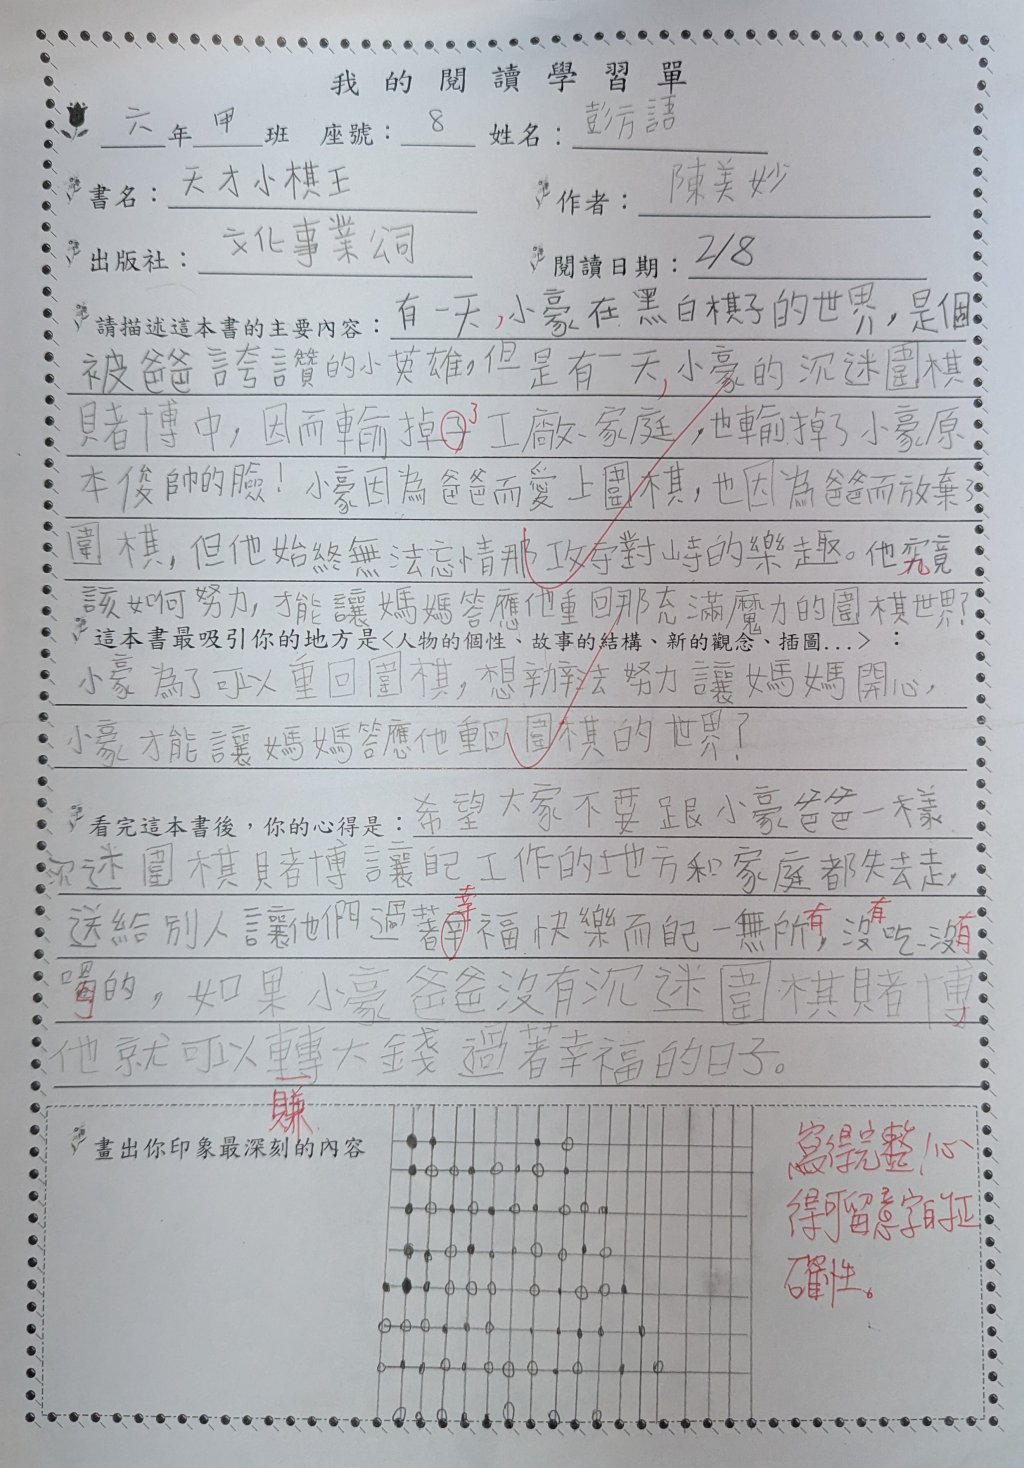 我的閱讀學習單
六年甲班 座號：8 姓名：彭方語
書名：天才小棋王 作者：陳美妙
出版社：文化事業公司 閱讀日期：2/8
請描述這本書的主要內容：有一天，小豪在黑白棋子的世界，是個
被爸爸誇讚的小英雄，但是有一天，小豪的沉迷圍棋
賭博中，因而輸掉子了工廠、家庭，也輸掉了小豪原
本俊帥的臉！小豪因為爸爸而愛上圍棋，也因為爸爸而放棄了
圍棋，但他始終無法忘情那攻守對峙的樂趣。他究竟
該如何努力，才能讓媽媽答應他重回那充滿魔力的圍棋世界？
這本書最吸引你的地方是<人物的個性、故事的結構、新的觀念、插圖...>：
小豪為了可以重回圍棋，想辦法努力讓媽媽開心，
小豪才能讓媽媽答應他重回圍棋的世界？
看完這本書後，你的心得是：希望大家不要跟小豪爸爸一樣
沉迷圍棋賭博讓自己工作的地方和家庭都失去走，
幸
送給別人讓他們過著福快樂而自己一無所有，沒有吃、沒有
喝的，如果小豪爸爸沒有沉迷圍棋賭博
他就可以轉大錢過著幸福的日子。
賺
畫出你印象最深刻的內容
寫得完整，心
得可留意字的正
確性。